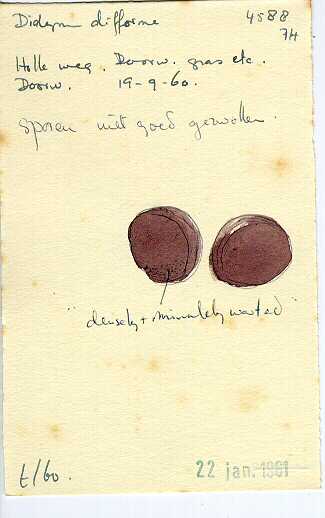 Didym difforme 4588
74
Holle weg. Doorw. gras etc.
Doorw. 19-9-60.
Sporen niet goed gezwollen.
"densely + minutely warted"
t/60.
22 jan. 1961